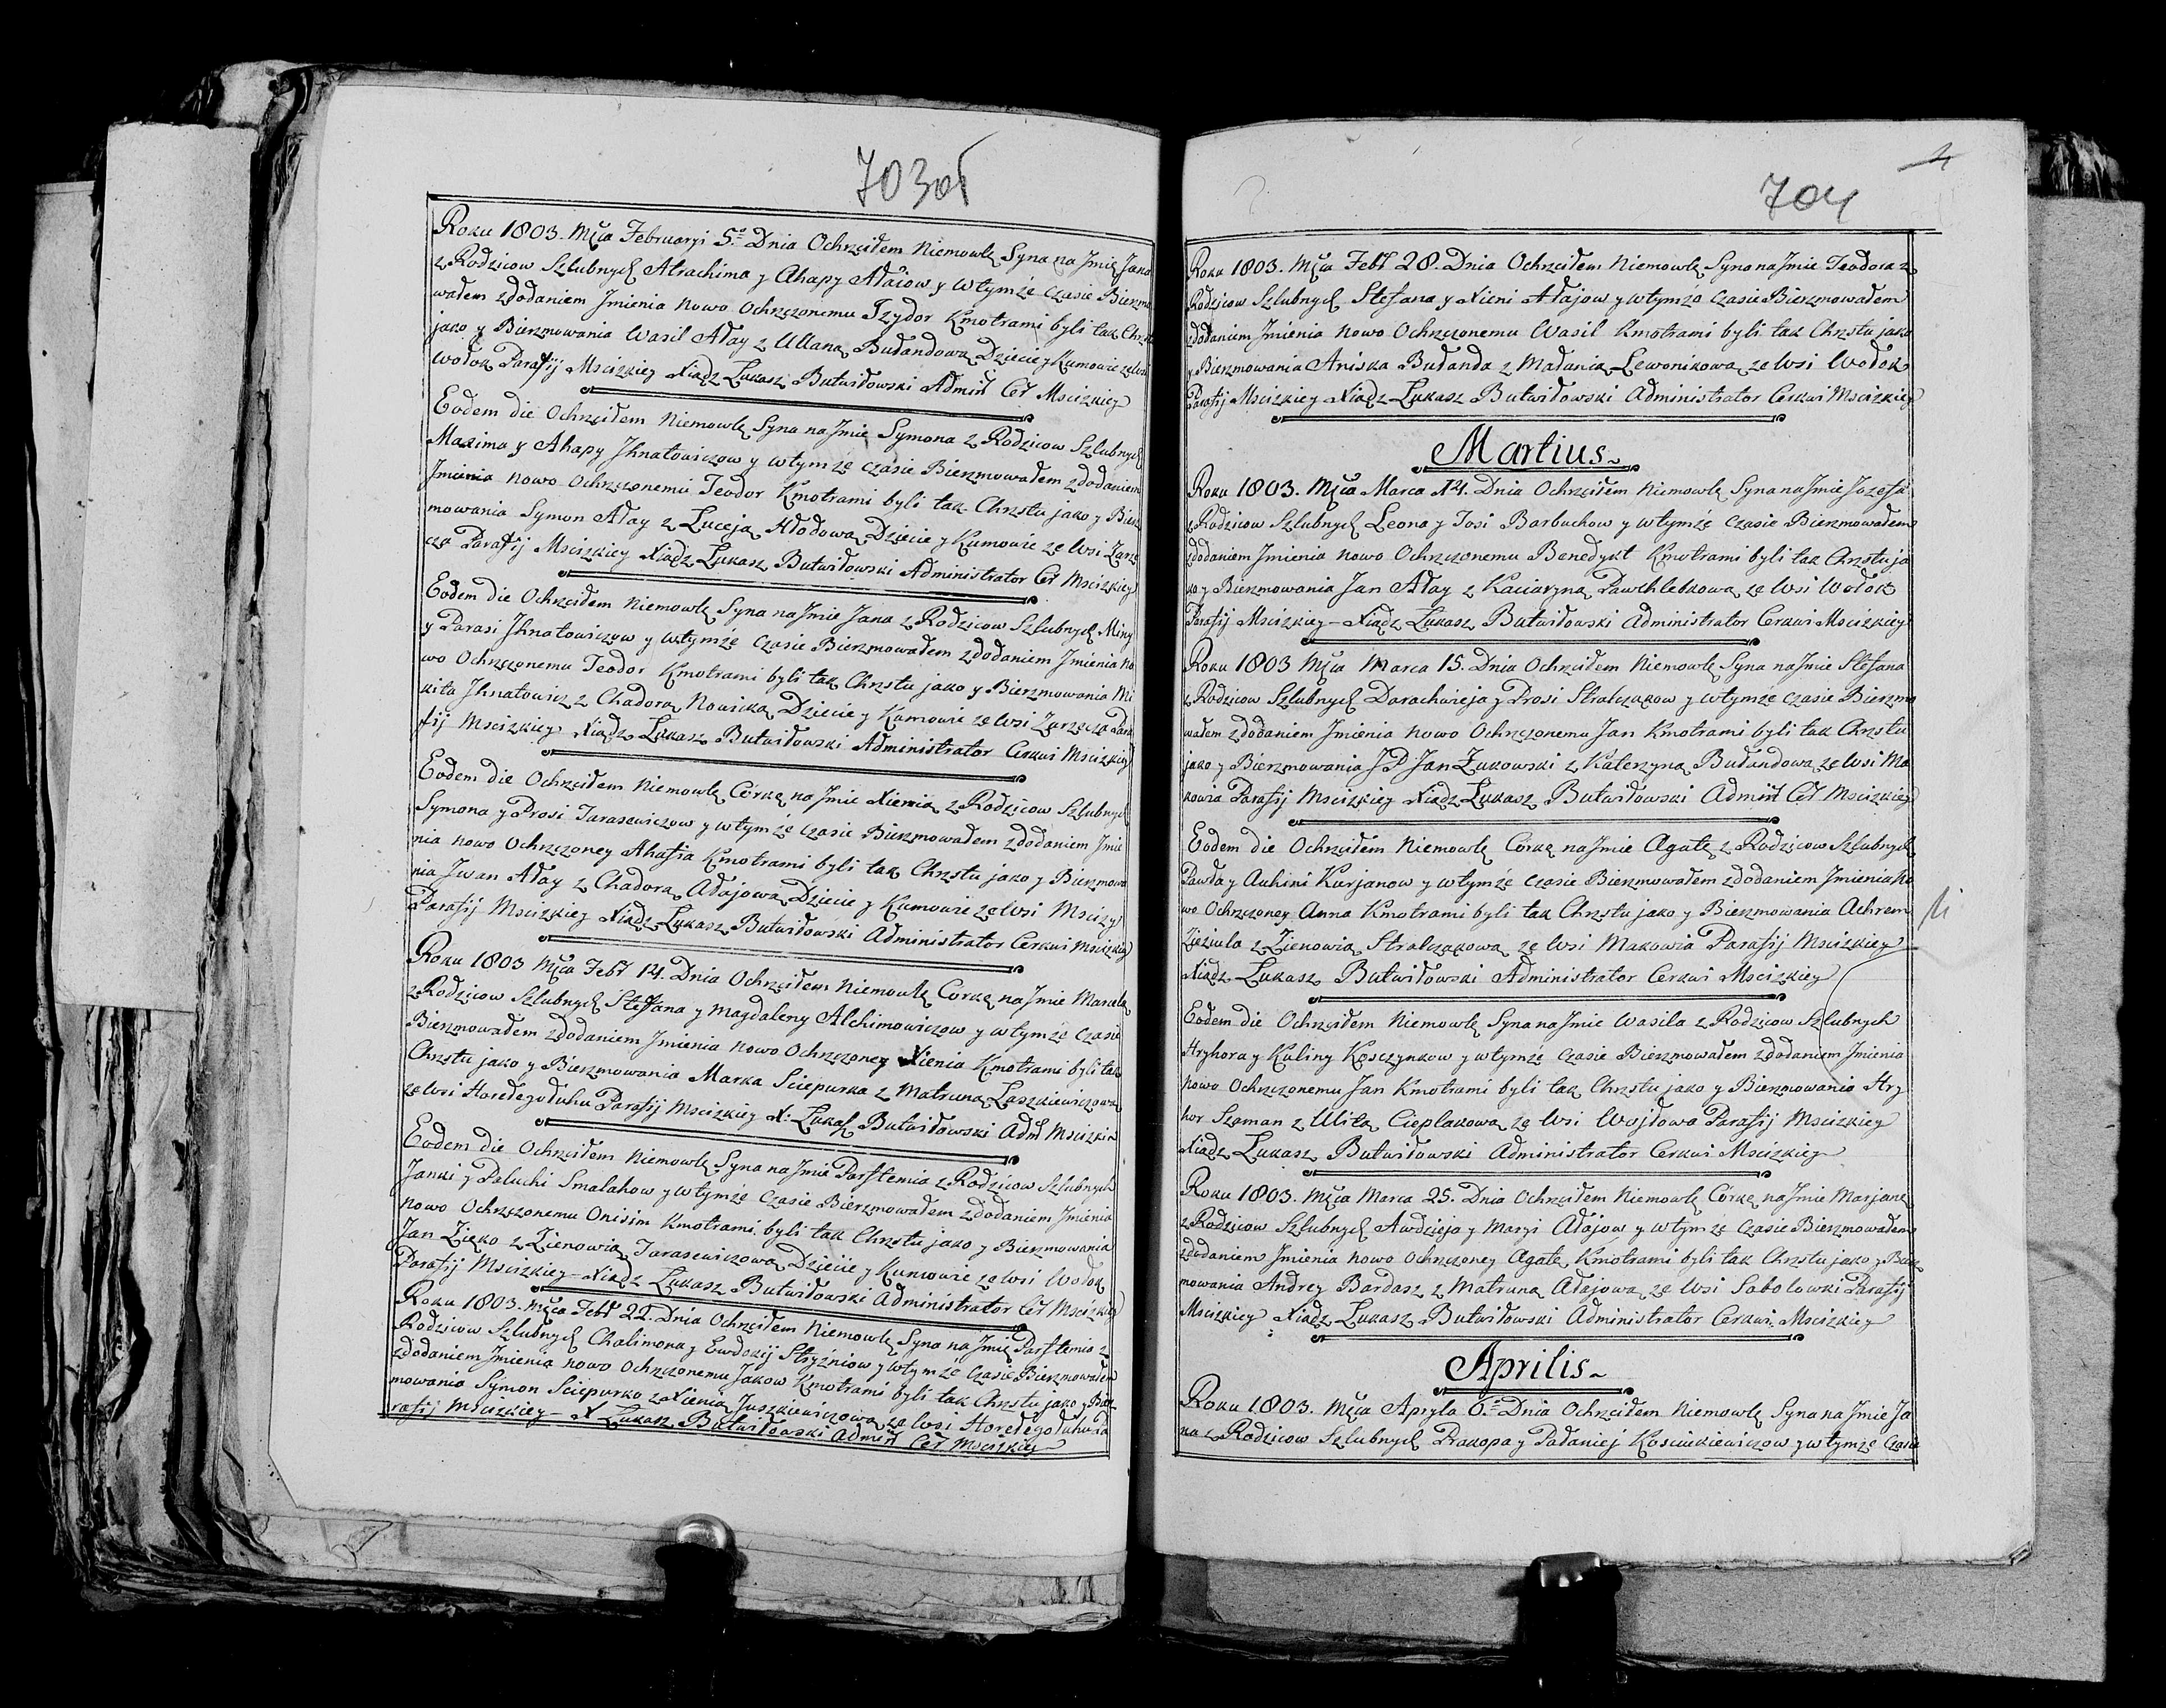 703об
Roku 1803. Mca Februaryi 5.º Dnia Ochrzciłem Niemowlę Syna na Jmie Jana
z Rodzicow Szlubnych Atrachima y Ahapy Adaiow y wtymże czasie Bierzmo
wałem zdodaniem Jmienia nowo Ochrzczonemu Jzydor Kmotrami byli tak Chrztu
jako y Bierzmowania Wasil Aday z Ullaną Budandową Dziecie y Kumowie ze wsi
Wołok Parafij Mscizkiey Xiądz Łukasz Butwiłowski Admin Cer Mscizkiey
Eodem die Ochrzciłem Niemowlę Syna na Jmie Symona z Rodzicow Szlubnych
Maxima y Ahapy Jhnatowiczow y wtymże czasie Bierzmowałem zdodaniem
Jmienia nowo Ochrzczonemu Teodor Kmotrami byli tak Chrztu jako y Bierz
mowania Symon Aday z Łuceją Hłodową Dziecie y Kumowie ze wsi Zarze
cza Parafij Mscizkiey Xiądz Łukasz Butwiłowski Administrator Cer Mscizkiey
Eodem die Ochrzciłem Niemowlę Syna na Jmie Jana z Rodzicow Szlubnych Miny
y Parasi Jhnatowiczow y wtymże czasie Bierzmowałem zdodaniem Jmienia no
wo Ochrzczonemu Teodor Kmotrami byli tak Chrztu jako y Bierzmowania Mi
kita Jhnatowicz z Chadorą Nowiską Dziecie y Kumowie ze wsi Zarzecza Para
fij Mscizkiey Xiądz Łukasz Butwiłowski Administrator Cerkwi Mscizkiey
Eodem die Ochrzciłem Niemowlę Corkę na Jmie Xienią z Rodzicow Szlubnych
Symona y Prosi Tarasewiczow y wtymże czasie Bierzmowałem zdodaniem Jmie
nia nowo Ochrzczoney Ahafia Kmotrami byli tak Chrztu jako y Bierzmowa
nia Jwan Aday z Chadorą Adajową Dziecie y Kumowie ze wsi Mscizy
Parafij Mscizkiey Xiądz Łukasz Butwiłowski Administrator Cerkwi Mscizkiey
Roku 1803 Mca Febr 14. Dnia Ochrzciłem Niemowlę Corkę na Jmie Marcelę
z Rodzicow Szlubnych Stefana y Magdaleny Alchimowiczow y wtymże czasie
Bierzmowałem zdodaniem Jmienia nowo Ochrzczoney Xienia Kmotrami byli tak
Chrztu jako y Bierzmowania Marka Sciepurka z Matruną Łaszkiewiczową
ze wsi Horełegołuhu Parafij Mscizkiey X. Łukasz Butwiłowski Adm Mscizkiey
Eodem die Ochrzciłem Niemowlę Syna na Jmie Parftemia z Rodzicow Szlubnych
Janki y Paluchi Smalahow y wtymże czasie Bierzmowałem zdodaniem Jmienia
nowo Ochrzczonemu Onisim Kmotrami byli tak Chrztu jako y Bierzmowania
Jan Ziẹko z Zienowią Tarasewiczową Dziecie y Kumowie ze wsi Wołok
Parafij Mscizkiey Xiądz Łukasz Butwiłowski Administrator Cer Mscizkiey
Roku 1803. Mca Febr 22. Dnia Ochrzciłem Niemowlę Syna na Jmie Parftemia z
Rodzicow Szlubnych Chalimona y Ewdokij Stryżniow y wtymże czasie Bierzmowałem
zdodaniem Jmienia nowo Ochrzczonemu Jakow Kmotrami byli tak Chrztu jako y Bierz
mowania Symon Sciepurko z Xienią Juszkiewiczową ze wsi Horełegołuhu Pa
rafij Mscizkiey X Łukasz Butwiłowski Admin Cer Mscizkiey
704
Roku 1803. Mca Febr 28. Dnia Ochrzciłem Niemowlę Syna na Jmie Teodora z
Rodzicow Szlubnych Stefana y Xieni Adajow y wtymże czasie Bierzmowałem
zdodaniem Jmienia nowo Ochrzczonemu Wasil Kmotrami byli tak Chrztu jako
y Bierzmowania Aniska Budanda z Małanią Lewonikową ze wsi Wołok
Parafij Mscizkiey Xiądz Łukasz Butwiłowski Administrator Cerkwi Mscizkiey
Martius
Roku 1803. Mca Marca 14. Dnia Ochrzciłem Niemowlę Syna na Jmie Jozefa
z Rodzicow Szlubnych Leona y Josi Barbuchow y wtymże czasie Bierzmowałem
zdodaniem Jmienia nowo Ochrzczonemu Benedykt Kmotrami byli tak Chrztu ja
ko y Bierzmowania Jan Aday z Kaciaryną Pawchlebkową ze wsi Wołok
Parafij Mscizkiey Xiądz Łukasz Butwiłowski Administrator Cerkwi Mscizkiey
Roku 1803 Mca Marca 15. Dnia Ochrzciłem Niemowlę Syna na Jmie Stefana
z Rodzicow Szlubnych Darachwieja y Prosi Stralczakow y wtymże czasie Bierzmo
wałem zdodaniem Jmienia nowo Ochrzczonemu Jan Kmotrami byli tak Chrztu
jako y Bierzmowania JP Jan Żukowski z Katerzyną Budandową ze wsi Ma
kowia Parafij Mscizkiey Xiądz Łukasz Butwiłowski Admin Cer Mscizkiey
Eodem die Ochrzciłem Niemowlę Corkę na Jmie Agatę z Rodzicow Szlubnych
Pawła y Auhini Kurjanow y wtymże czasie Bierzmowałem zdodaniem Jmienia no
wo Ochrzczoney Anna Kmotrami byli tak Chrztu jako y Bierzmowania Achrem
Zieziula z Zienowią Stralczakową ze wsi Makowia Parafij Mscizkiey
Xiądz Łukasz Butwiłowski Administrator Cerkwi Mscizkiey
Eodem die Ochrzciłem Niemowlę Syna na Jmie Wasila z Rodzicow Szlubnych
Hryhora y Kuliny Kosczynkow y wtymże czasie Bierzmowałem zdodaniem Jmienia
nowo Ochrzczonemu Jan Kmotrami byli tak Chrztu jako y Bierzmowania Hry
hor Szaman z Ulitą Cieplakową ze wsi Wojłowa Parafij Mscizkiey
Xiądz Łukasz Butwiłowski Administrator Cerkwi Mscizkiey
Roku 1803. Mca Marca 25. Dnia Ochrzciłem Niemowlę Corkę na Jmie Marjanę
z Rodzicow Szlubnych Awdzieja y Maryi Adajow y wtymże czasie Bierzmowałem
zdodaniem Jmienia nowo Ochrzczoney Agatę Kmotrami byli tak Chrztu jako y Bierz
mowania Andrey Bardasz z Matruną Adajową ze wsi Sabolowki Parafij
Mscizkiey Xiądz Łukasz Butwiłowski Administrator Cerkwi Mscizkiey
Aprilis
Roku 1803. Mca Apryla 6.º Dnia Ochrzciłem Niemowlę Syna na Jmie Ja
na z Rodzicow Szlubnych Prakopa y Pałaniej Kosciukiewiczow y wtymże czasie